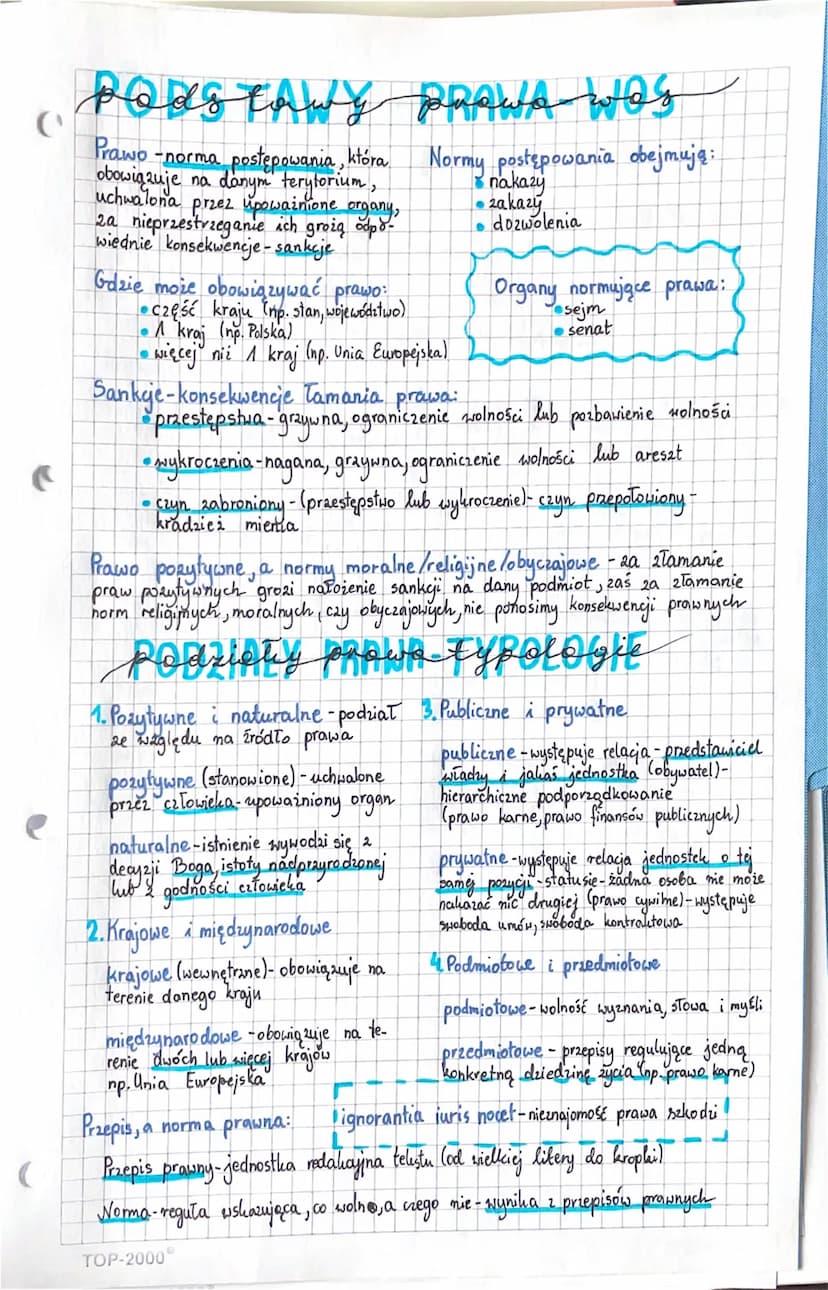 PODSTAWY PRAWA-WOS
podstawy prawa-wos
Prawo - norma postępowania, która
obowiązuje na danym terytorium,
uchwalona przez upoważnione organy,
za nieprzestrzeganie ich grożą odpo-
wiednie konsekwencje - sankcje
Normy postępowania obejmują:
• nakazy
• zakazy
• dozwolenia
Gdzie może obowiązywać prawo:
• część kraju (np. stan, województwo)
• 1 kraj (np. Polska)
• więcej niż 1 kraj (np. Unia Europejska)
Organy normujące prawa:
• sejm
• senat
Sankcje-konsekwencje łamania prawa:
• przestępstwa - grzywna, ograniczenie wolności lub pozbawienie wolności
• wykroczenia - nagana, grzywna, ograniczenie wolności lub areszt
• czyn zabroniony - (przestępstwo lub wykroczenie) - czyn przepołowiony -
kradzież mienia
Prawo pozytywne, a normy moralne/religijne/obyczajowe - za złamanie
praw pozytywnych grozi nałożenie sankcji na dany podmiot, zaś za złamanie
norm religijnych, moralnych, czy obyczajowych, nie ponosimy konsekwencji prawnych
PODZIAŁY PRAWA-TYPOLOGIE
podziały prawa-typologie
1. Pozytywne i naturalne - podział
ze względu na źródło prawa
pozytywne (stanowione) - uchwalone
przez człowieka - upoważniony organ
naturalne - istnienie wywodzi się z
decyzji Boga, istoty nadprzyrodzonej
lub z godności człowieka
2. Krajowe i międzynarodowe
krajowe (wewnętrzne) - obowiązuje na
terenie danego kraju
międzynarodowe - obowiązuje na te-
renie dwóch lub więcej krajów
np. Unia Europejska
3. Publiczne i prywatne
publiczne - występuje relacja - przedstawiciel
władzy i jakaś jednostka (obywatel) -
hierarchiczne podporządkowanie
(prawo karne, prawo finansów publicznych)
prywatne - występuje relacja jednostek o tej
samej pozycji - statusie - żadna osoba nie może
nakazać nic drugiej (prawo cywilne) - występuje
swoboda umów, swoboda kontraktowa
4. Podmiotowe i przedmiotowe
podmiotowe - wolność wyznania, słowa i myśli
przedmiotowe - przepisy regulujące jedną
konkretną dziedzinę życia (np. prawo karne)
Przepis, a norma prawna:
ignorantia iuris nocet - nieznajomość prawa szkodzi
Przepis prawny - jednostka redakcyjna tekstu (od wielkiej litery do kropki)
Norma - reguła wskazująca, co wolno, a czego nie - wynika z przepisów prawnych
TOP-2000®